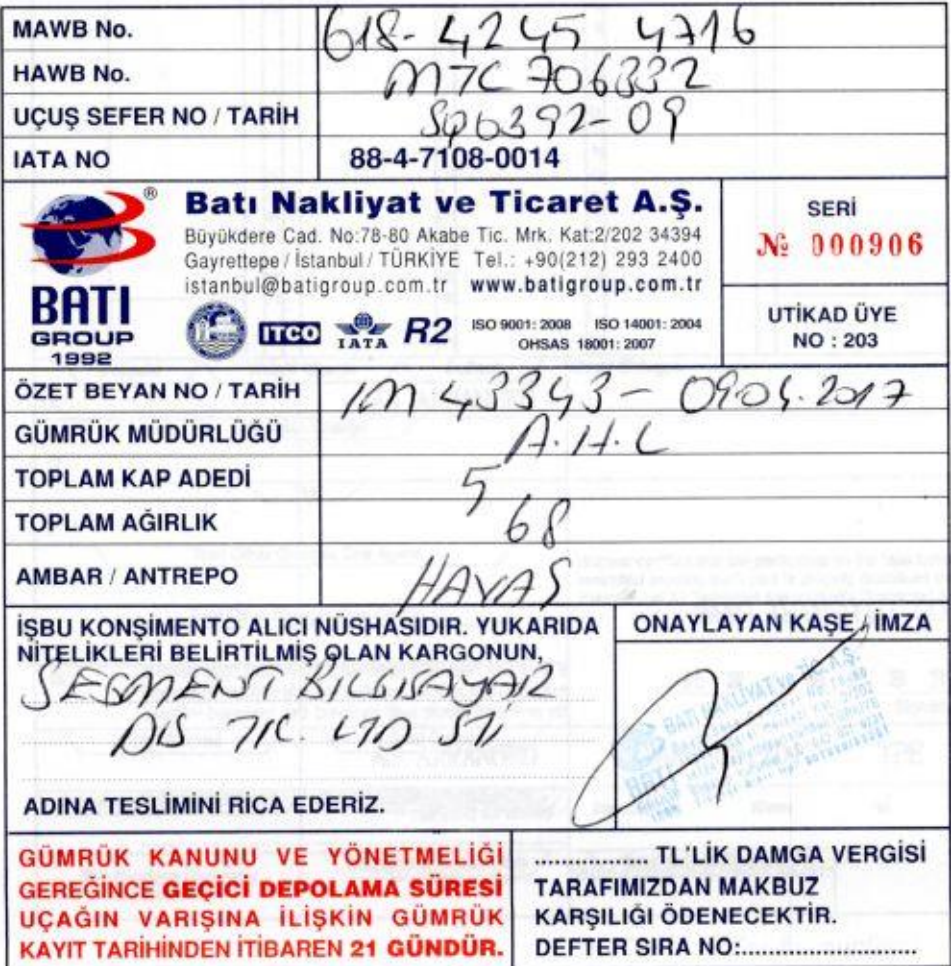 MAWB No. 618-4245 4716
HAWB No. MTC 706332
UÇUŞ SEFER NO / TARİH SQ6392-09
IATA NO 88-4-7108-0014
Batı Nakliyat ve Ticaret A.Ş.
Büyükdere Cad. No:78-80 Akabe Tic. Mrk. Kat:2/202 34394
Gayrettepe / İstanbul / TÜRKİYE Tel.: +90(212) 293 2400
istanbul@batigroup.com.tr www.batigroup.com.tr
BATI
GROUP
1992
ITCO IATA R2 ISO 9001: 2008 ISO 14001: 2004
OHSAS 18001: 2007
SERİ
№ 000906
UTİKAD ÜYE
NO : 203
ÖZET BEYAN NO / TARİH IM 43343- 09.04.2017
GÜMRÜK MÜDÜRLÜĞÜ A.H.L
TOPLAM KAP ADEDİ 5
TOPLAM AĞIRLIK 68
AMBAR / ANTREPO HAVAS
İŞBU KONŞİMENTO ALICI NÜSHASIDIR. YUKARIDA
NİTELİKLERİ BELİRTİLMİŞ OLAN KARGONUN,
SEGMENT BILGISAYAR
DIS TIC. LTD STI
ADINA TESLİMİNİ RİCA EDERİZ.
ONAYLAYAN KAŞE / İMZA
BATI NAKLİYAT ve TİC. A.Ş.
BATI
GÜMRÜK KANUNU VE YÖNETMELİĞİ
GEREĞİNCE GEÇİCİ DEPOLAMA SÜRESİ
UÇAĞIN VARIŞINA İLİŞKİN GÜMRÜK
KAYIT TARİHİNDEN İTİBAREN 21 GÜNDÜR.
................. TL'LİK DAMGA VERGİSİ
TARAFIMIZDAN MAKBUZ
KARŞILIĞI ÖDENECEKTİR.
DEFTER SIRA NO:..........................